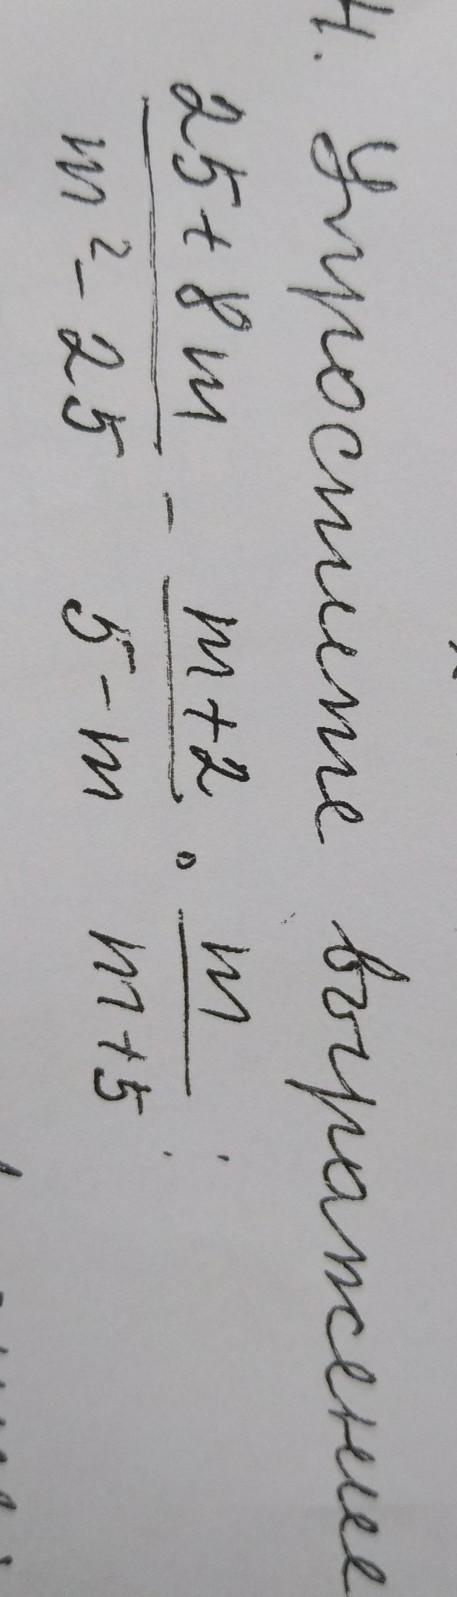 4. Упростите выражение
25+8m / m² - 25 - m+2 / 5-m · m / m+5 ;